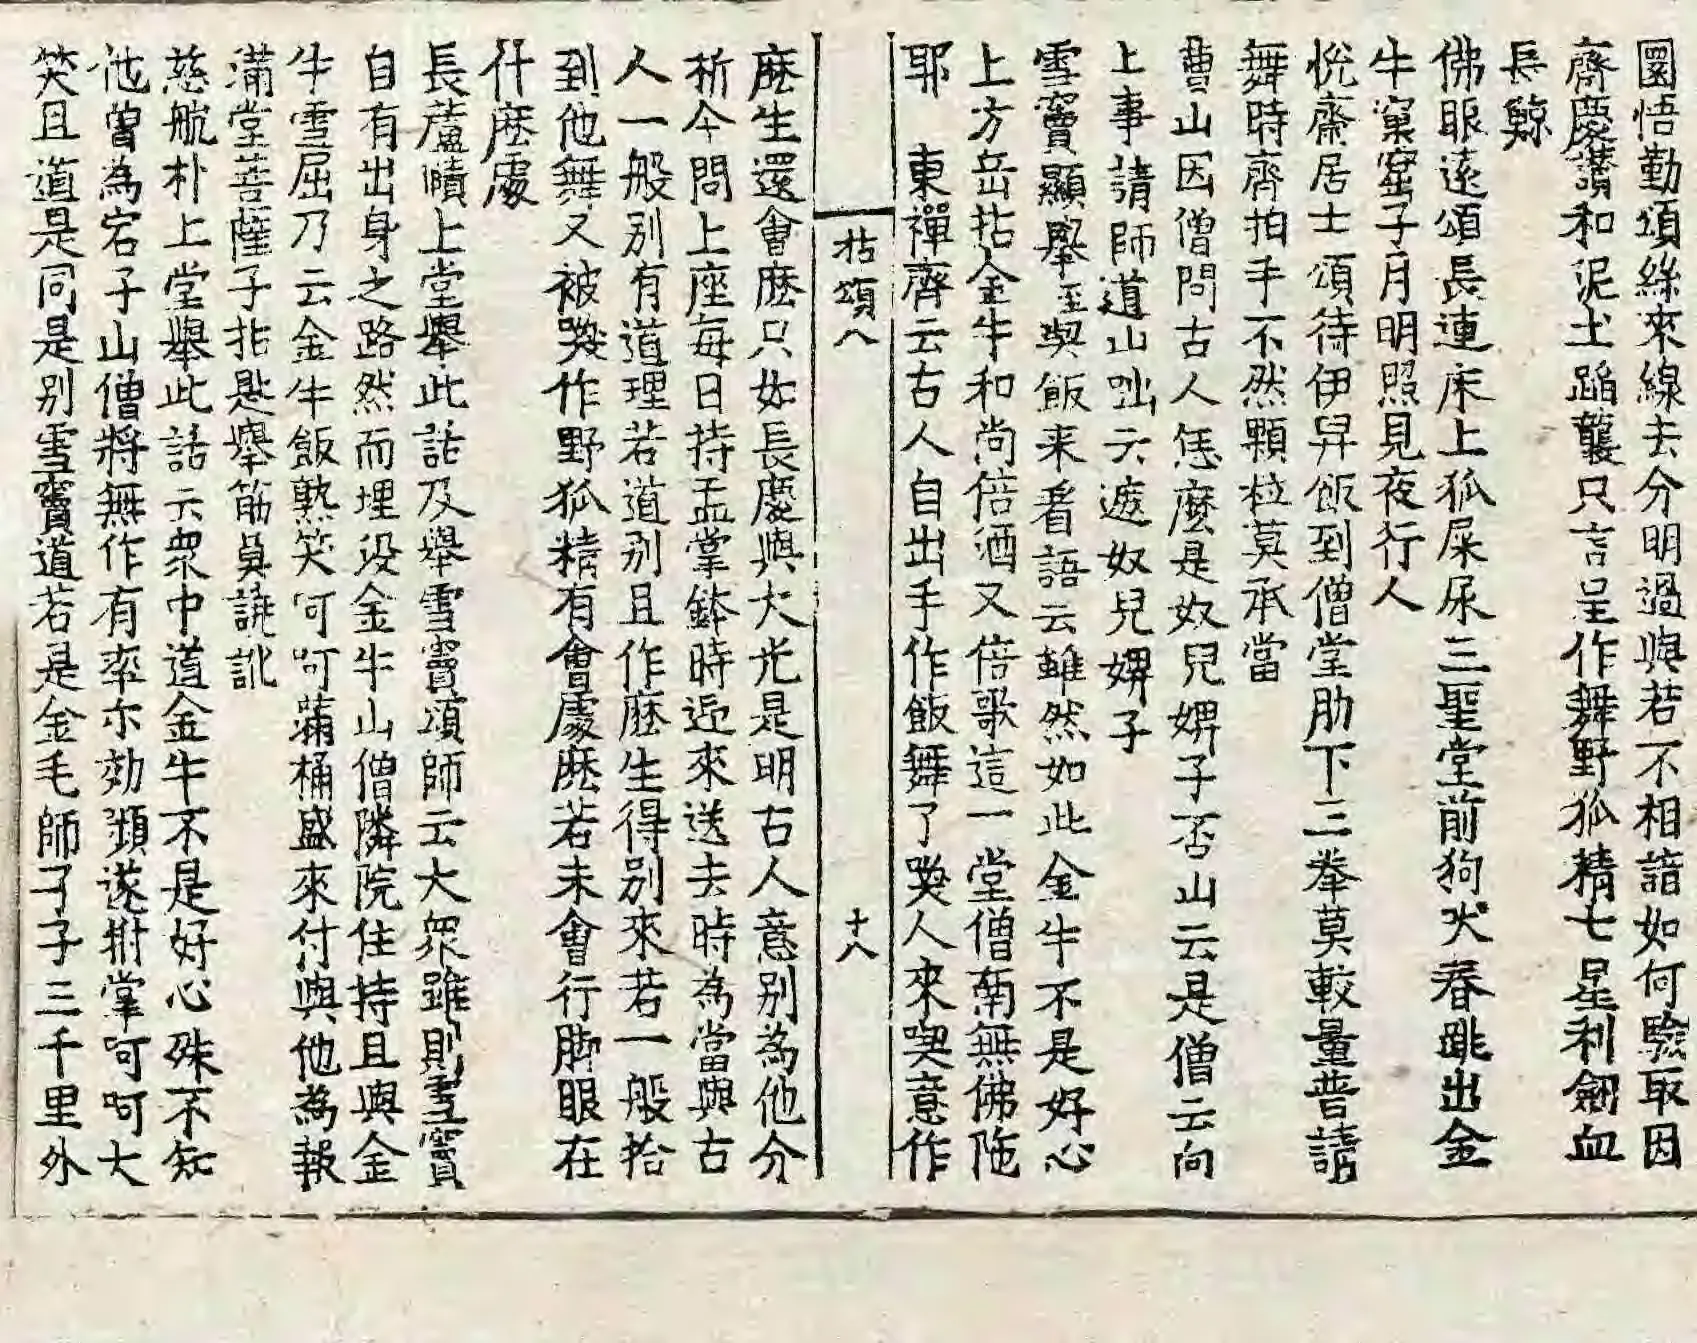 圜悟勤頌絲來線去分明過與若不相諳如何驗取因
齋慶讚和泥土蹈襲只言呈作舞野狐精七星利劒血
長鯨
佛眼遠頌長連床上狐屎尿三聖堂前狗吠春跳出金
牛窠窟子月明照見夜行人
悅齋居士頌待伊舁飯到僧堂肋下三拳莫較量普請
舞時齊拍手不然顆粒莫承當
曹山因僧問古人恁麽是奴兒婢子否山云是僧云向
上事請師道山咄云遮奴兒婢子
雪竇顯擧至與飯来看語云雖然如此金牛不是好心
上方岳拈金牛和尚倍酒又倍歌這一堂僧南無佛陁
耶　東禪齊云古人自出手作飯舞了喚人來喫意作
拈頌八　十八
麽生還會麽只如長慶與大光是明古人意別為他分
析今問上座每日持盂掌鉢時迎來送去時為當與古
人一般別有道理若道別且作麽生得別來若一般拾
到他舞又被喚作野狐精有會處麽若未會行脚眼在
什麽處
長蘆賾上堂擧此話及擧雪竇頌師云大衆雖則雪竇
自有出身之路然而埋没金牛山僧隣院住持且與金
牛雪屈乃云金牛飯熟笑呵呵滿桶盛來付與他為報
滿堂菩薩子拈匙擧筯莫誵訛
慈航朴上堂擧此話云衆中道金牛不是好心殊不知
他曾為宕子山僧將無作有率尒効顰遂拊掌呵呵大
笑且道是同是別雪竇道若是金毛師子子三千里外